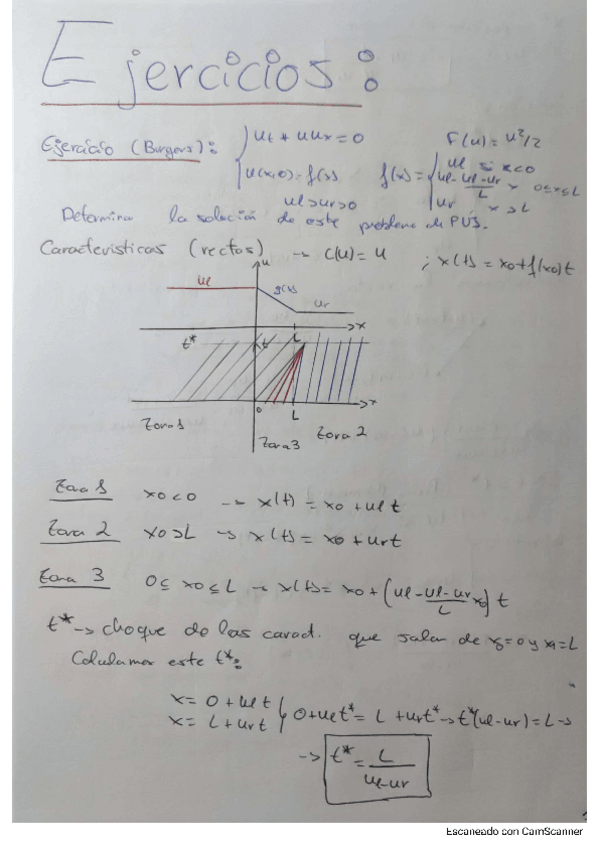 Ejercicios:
Ejercicio (Burgers): { ut + uux = 0 F(u) = u²/2
u(x,0) = f(x) f(x) = { ul si x<0
ul - (ul-ur)/L x 0≤x≤L
ur x>L
ul>ur>0
Determinar la solución de este problema de PVI.
Características (rectas) → C(u) = u ; x(t) = x0 + f(x0)t
u
ul
g(x)
ur
x
t* t L
x
0 L
Zona 1 Zona 3 Zona 2
Zona 1 x0<0 → x(t) = x0 + ul t
Zona 2 x0>L → x(t) = x0 + ur t
Zona 3 0≤x0≤L → x(t) = x0 + (ul - (ul-ur)/L x0) t
t* → choque de las caract. que salen de x0=0 y x1=L
Calculamos este t*:
x = 0 + ul t
x = L + ur t } 0 + ul t* = L + ur t* → t*(ul-ur) = L →
→ t* = L/(ul-ur)
Escaneado con CamScanner